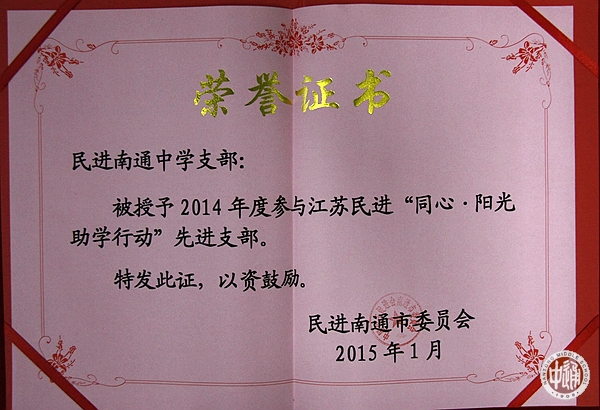 荣誉证书
民进南通中学支部：
被授予 2014 年度参与江苏民进“同心·阳光
助学行动”先进支部。
特发此证，以资鼓励。
民进南通市委员会
2015 年 1 月
中通